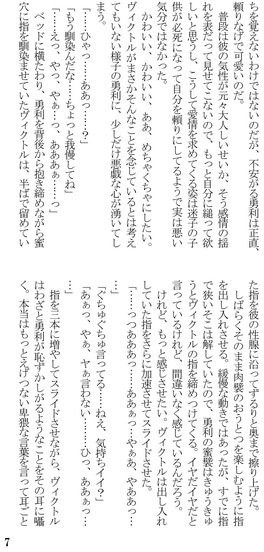 ちを変えないわけではないのだが、不安がる勇利は正直、
頼りなげで可愛いのだ。
普段は彼の気性が元々大人しいせいか、そう感情の揺
れを表だって見せてこないので、もっと自分に縋って欲
しいと思うし、こうして愛情を求めてくる姿は迷子の子
供が必死になって自分を頼りにしてるようで実は悪い
気分ではなかった。
かわいい、かわいい、ああ、めちゃくちゃにしたい。
ヴィクトルがまさかそんなことを念じているとは考え
てもいない様子の勇利に、少しだけ悪戯な心が湧いてし
まう。
「……ひゃっ……ああっ……？」
「もう馴染んだな……ちょっと我慢してね」
「……えっ、やっ、やぁーっ、あああぁ……っ」
ベッドに横たわり、勇利を背後から抱き締めながら蜜
穴に指を馴染ませていたヴィクトルは、半ばで留めてい
た指を彼の性腺に沿ってずるりと奥まで擦り上げた。
しばらくそのまま肉壁のおうとつを楽しむように指
を出し入れさせる。緩慢な動きではあったが、すでに指
で狭いそこは解していたので、勇利の蜜襞はきゅうきゅ
うとヴィクトルの指を締めつけてくる。イヤだイヤだと
言っているけれど、間違いなく感じているんだろう。
けれど、もっと感じさせたい。ヴィクトルは出し入れ
していた指をさらに加速させてスライドさせた。
「……っつあああ……あああっ……やーっあ、やああっ…
…」
「ぐちゅぐちゅ言ってる……ねえ、気持ちイイ？」
「あぁっ、やぁ、ヤぁ言わない……ひっ、あああっ……
…」
指を三本に増やしてスライドさせながら、ヴィクトル
はわざと勇利が恥ずかしがるようなことをその耳に囁
く。本当はもっとえげつない卑猥な言葉を言って耳ごと
7